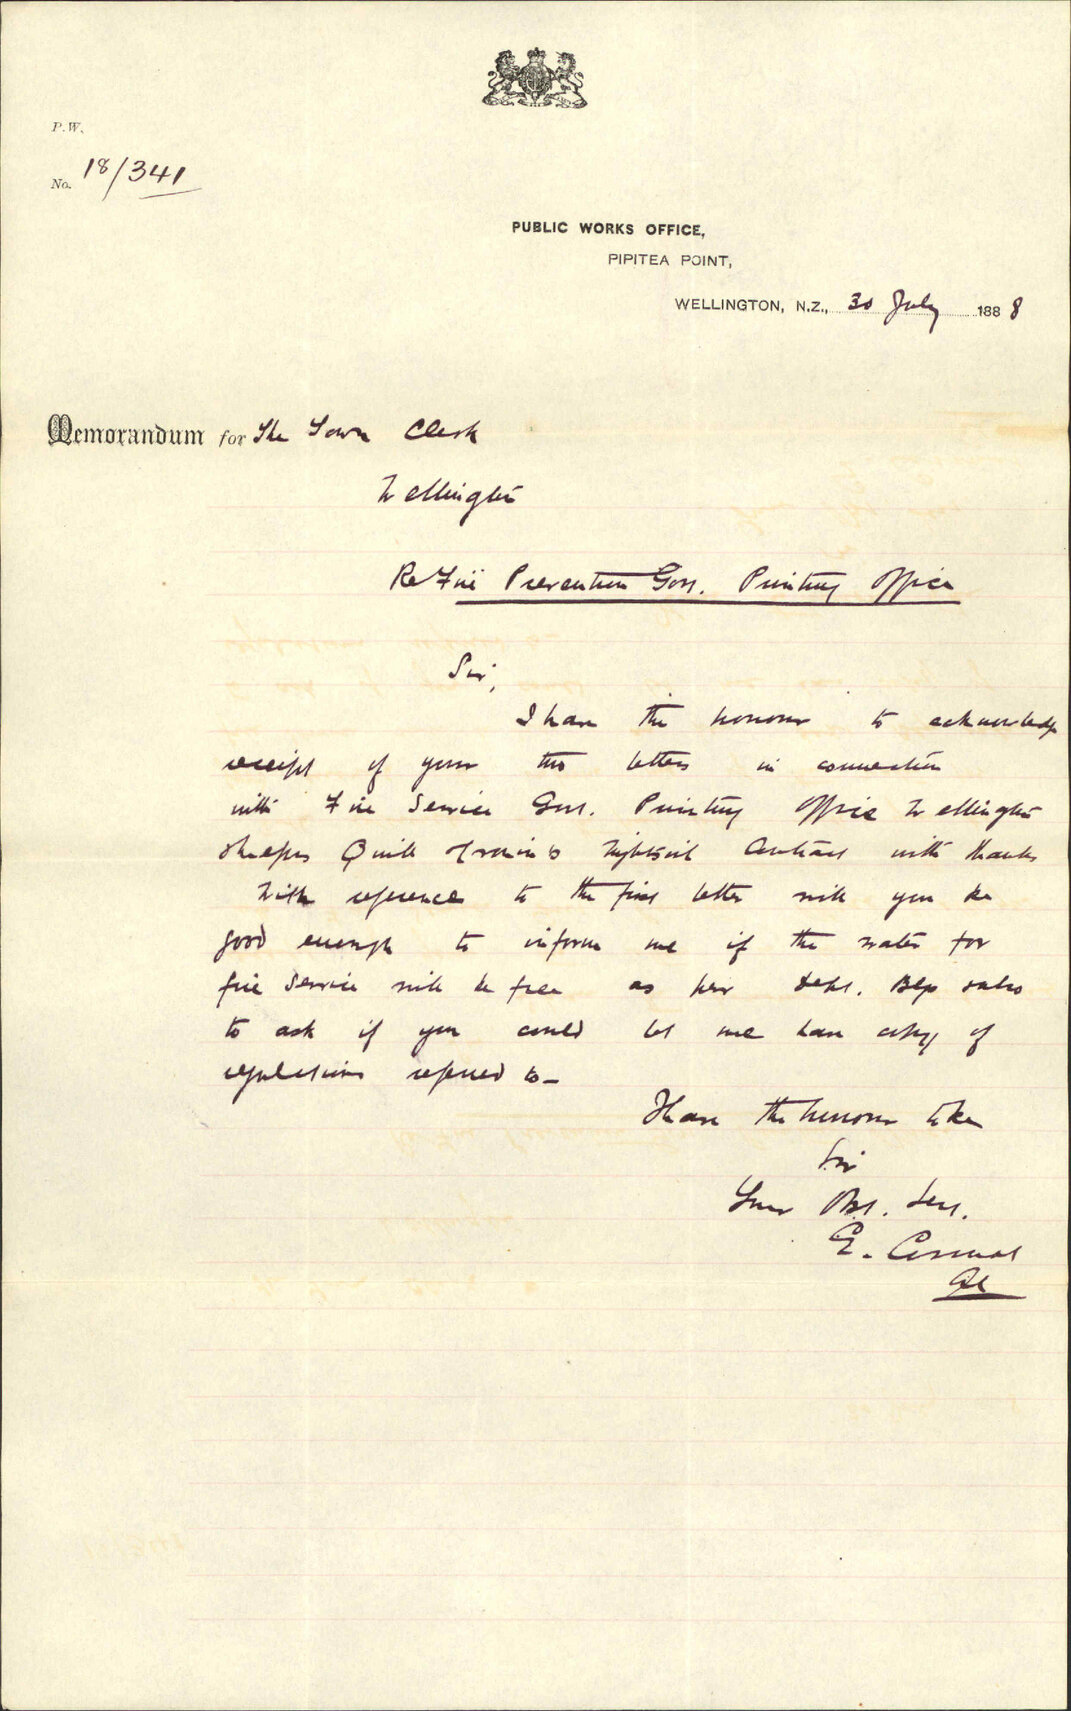 P.W.
No. 18/341
PUBLIC WORKS OFFICE,
PIPITEA POINT,
WELLINGTON, N.Z., 30 July 1888
Memorandum for The Town Clerk
Wellington
Re Fire Prevention Govt. Printing Office
Sir,
I have the honour to acknowledge
receipt of your two letters in connection
with Fire Service Govt. Printing Office Wellington
Nightsoil Contract with thanks
With reference to the first letter will you be
good enough to inform me if the water for
fire Service will be free as per
to ask if you could let me have copy of
regulations referred to—
I have the honour to be
Sir
Your Obt. Sert.
E.